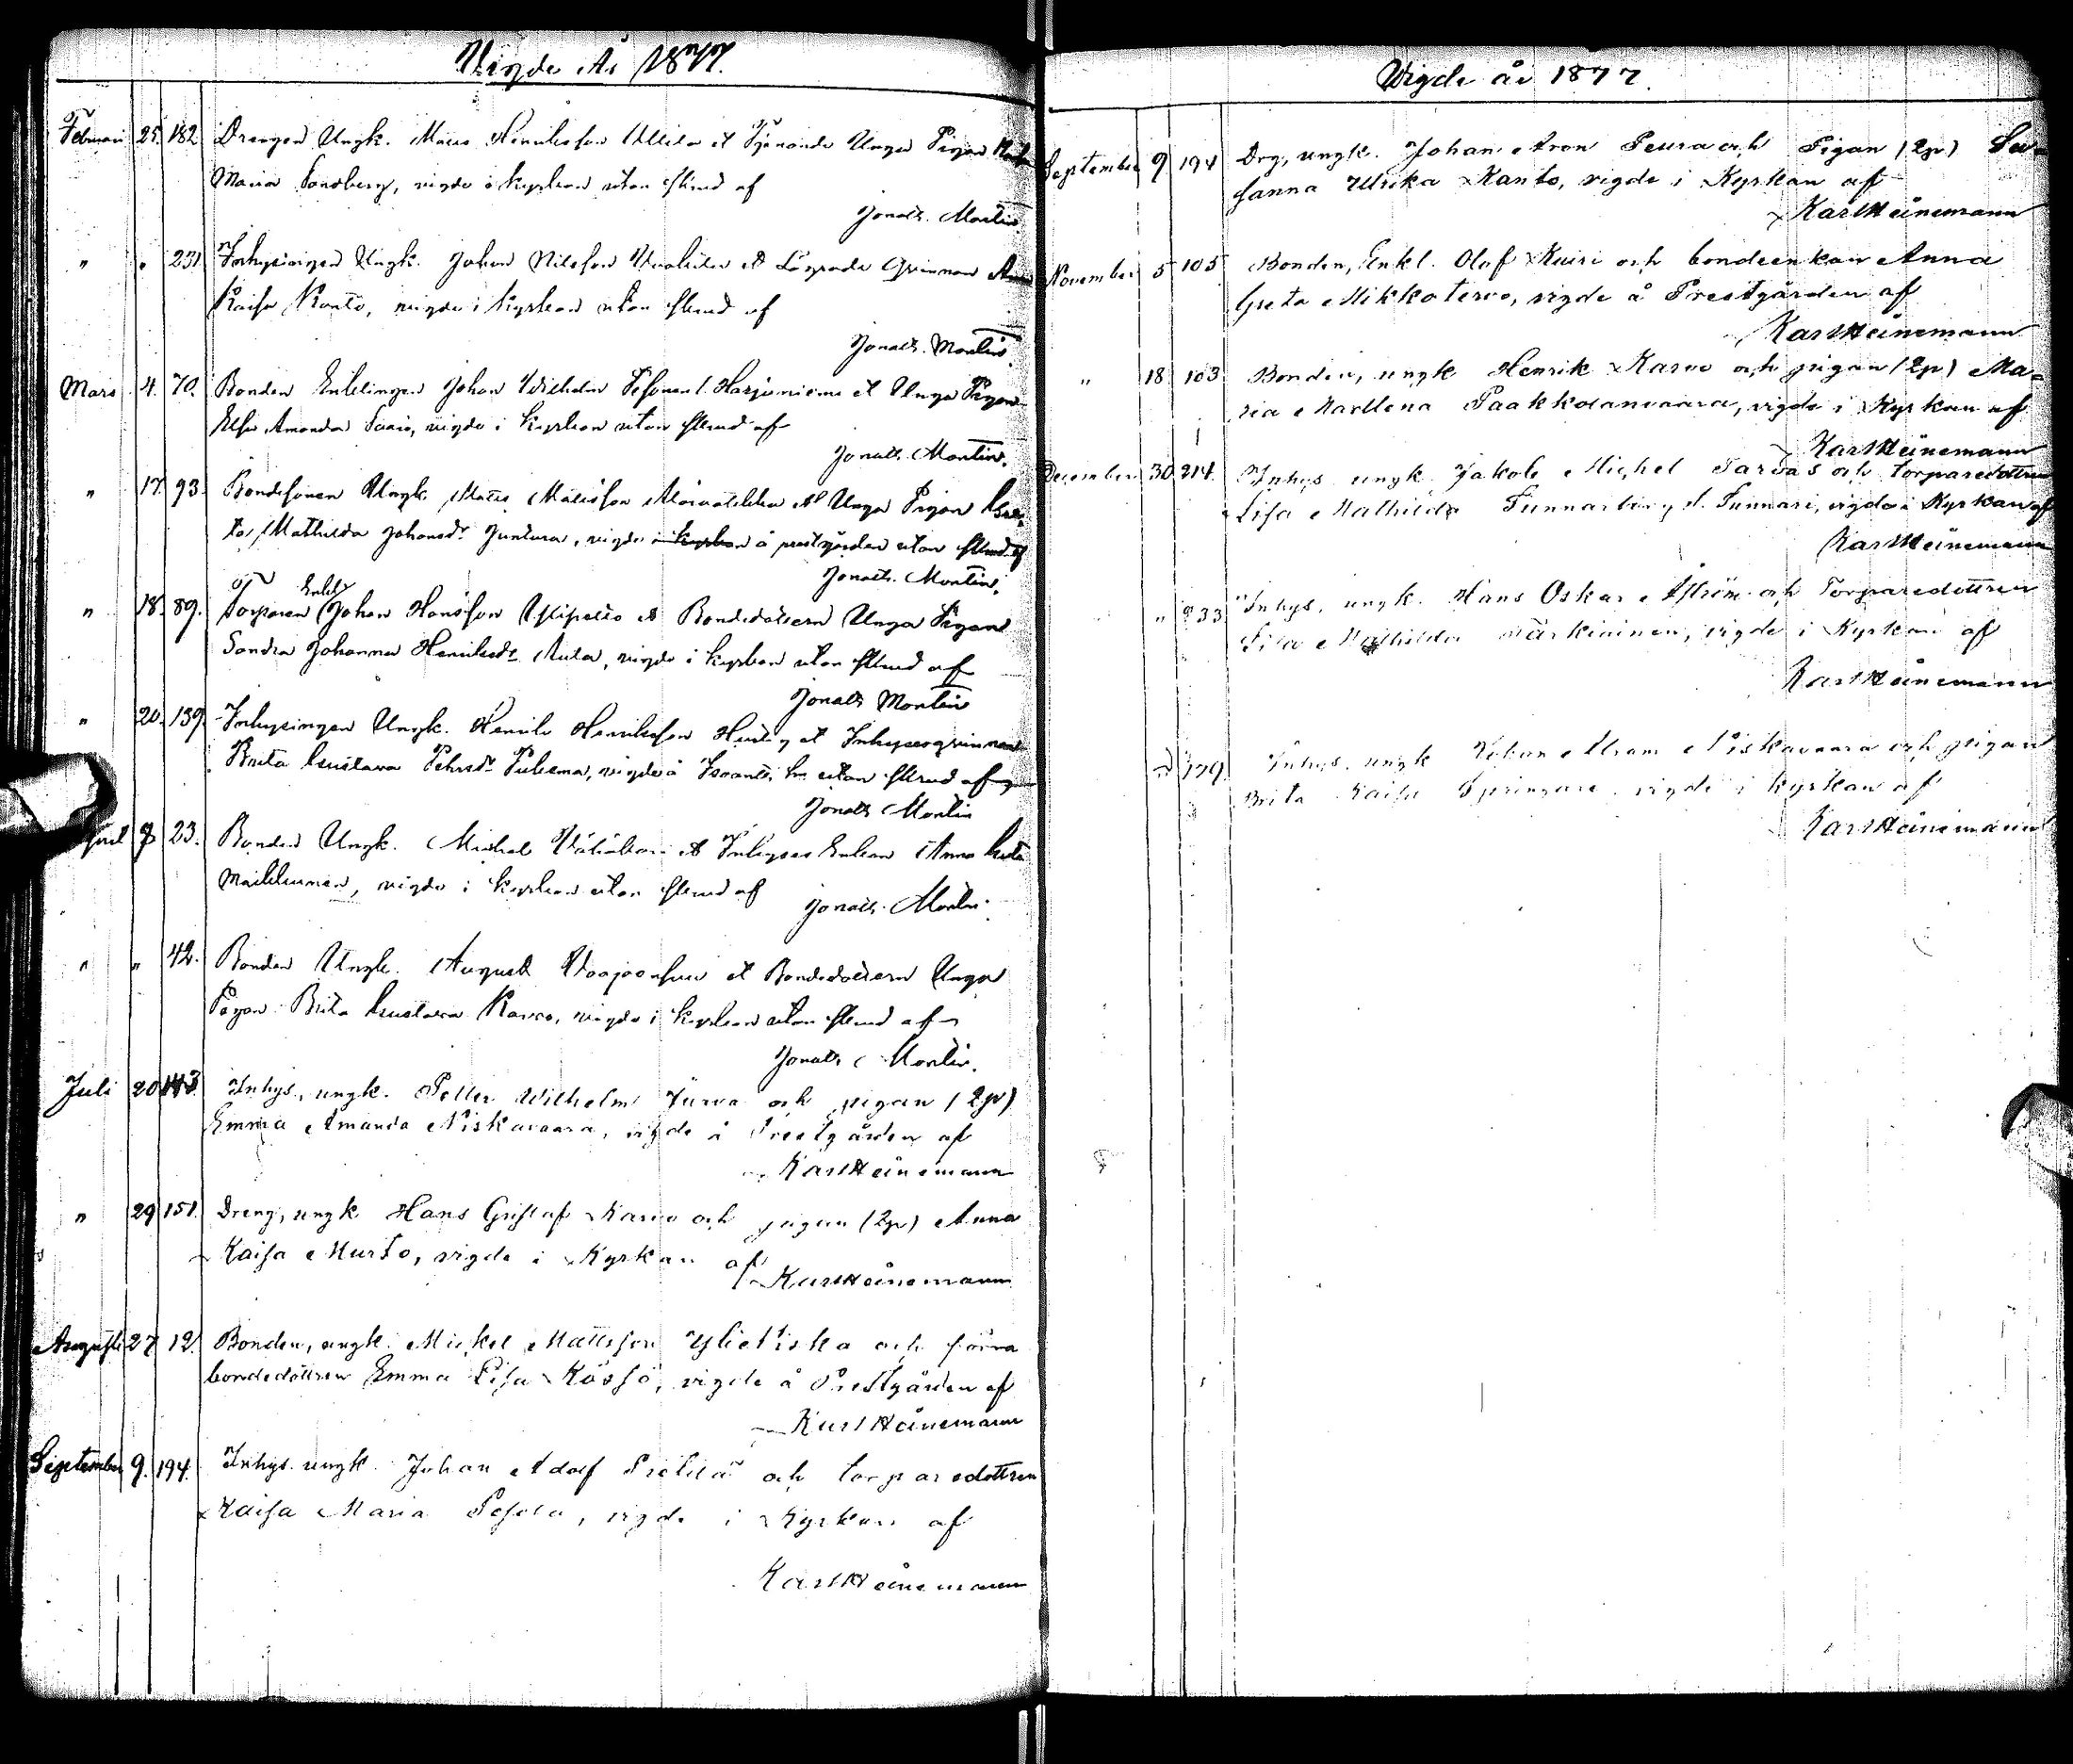 Vigde År 1877.
Februari 25. 182. Drengen Ungk. Matts Henriksson et Tjenande Unga Pigan
Maria Sandberg, vigde i kyrkan utan skrud af
Jonath. Montin.
" " 231. Inhysingen Ungk. Johan Nilsson et Lägrade Qvinnan Anna
Kaisa Kanto, vigde i kyrkan utan skrud af
Jonath. Montin.
Mars 4. 70. Bonden Enklingen Johan Wilhelm l. Harjuniemi et Unga Pigan
Elsa Amanda vigde i kyrkan utan skrud af
Jonath. Montin.
" 17. 93. Bondesonen Ungk. Matts Mattsson et Unga Pigan Gre-
ta Mathilda Johansdr. Juntura, vigde i kyrkan å prestgården utan skrud af
Jonath. Montin.
Enkl.
" 18. 89. Torparen Johan Hansson et Bondedottern Unga Pigan
Sandra Johanna Henriksdr. vigde i kyrkan utan skrud af
Jonath Montin
" 20. 139. Inhysingen Ungk. Henrik Henriksson et Inhysesqvinnan
Brita Gustava Pehrsdr. vigde å utan skrud af
Jonath Montin
April 8 23. Bonden Ungk. Michel et Inhyses Enkan Anna Greta
vigde i kyrkan utan skrud af
Jonath. Montin.
" " 42. Bonden Ungk. August et Bondedottern Unga
Pigan Brita Gustava Karvo, vigde i kyrkan utan skrud af
Jonath Montin.
Juli 20 143. Inhys., ungk. Petter Wilhelm och pigan (2p)
Emma Amanda Niskavaara, vigde å Prestgården af
Karl Heinemann
" 29 151. Dreng, ungk Hans Gustaf Karvo och pigan (2p) Anna
Kaisa Murto, vigde i Kyrkan af
Karl Heinemann
Augusti 27 12. Bonden, ungk. Mickel Mattsson och förra
bondedottren Emma Lisa Kössö, vigde å Prestgården af
Karl Heinemann
September 9. 194. Inhys. ungk. Johan Adolf och torparedottren
Kaisa Maria vigde i Kyrkan af
Karl Heinemann
Vigde år 1877.
September 9 194 Drg, ungk. Johan Aron Peura och Pigan (2p) Su-
sanna Ulrika Kanto, vigde i Kyrkan af
Karl Heinemann
November 5 105 Bonden, Enkl. Olof Kuiri och bondeenkan Anna
Greta Mikkoterwo, vigde å Prestgården af
Karl Heinemann
" 18 103 Bonden, ungk Henrik Karvo och pigan (2p) Ma-
ria Madlena vigde i Kyrkan af
Karl Heinemann
December 30 214. Inhys ungk Jakob Michel Sarvas och torparedottren
Lisa Mathilda Tunnarberg l. Tunnari, vigde i Kyrkan af
Karl Heinemann
" 233 Inhys. ungk. Hans Oskar Åström och Torparedottren
Lisa Mathilda vigde i Kyrkan af
Karl Heinemann
179 Inhys. ungk Johan Abram Niskavaara och pigan
Brita Kaisa Springare vigde i kyrkan af
Karl Heinemann